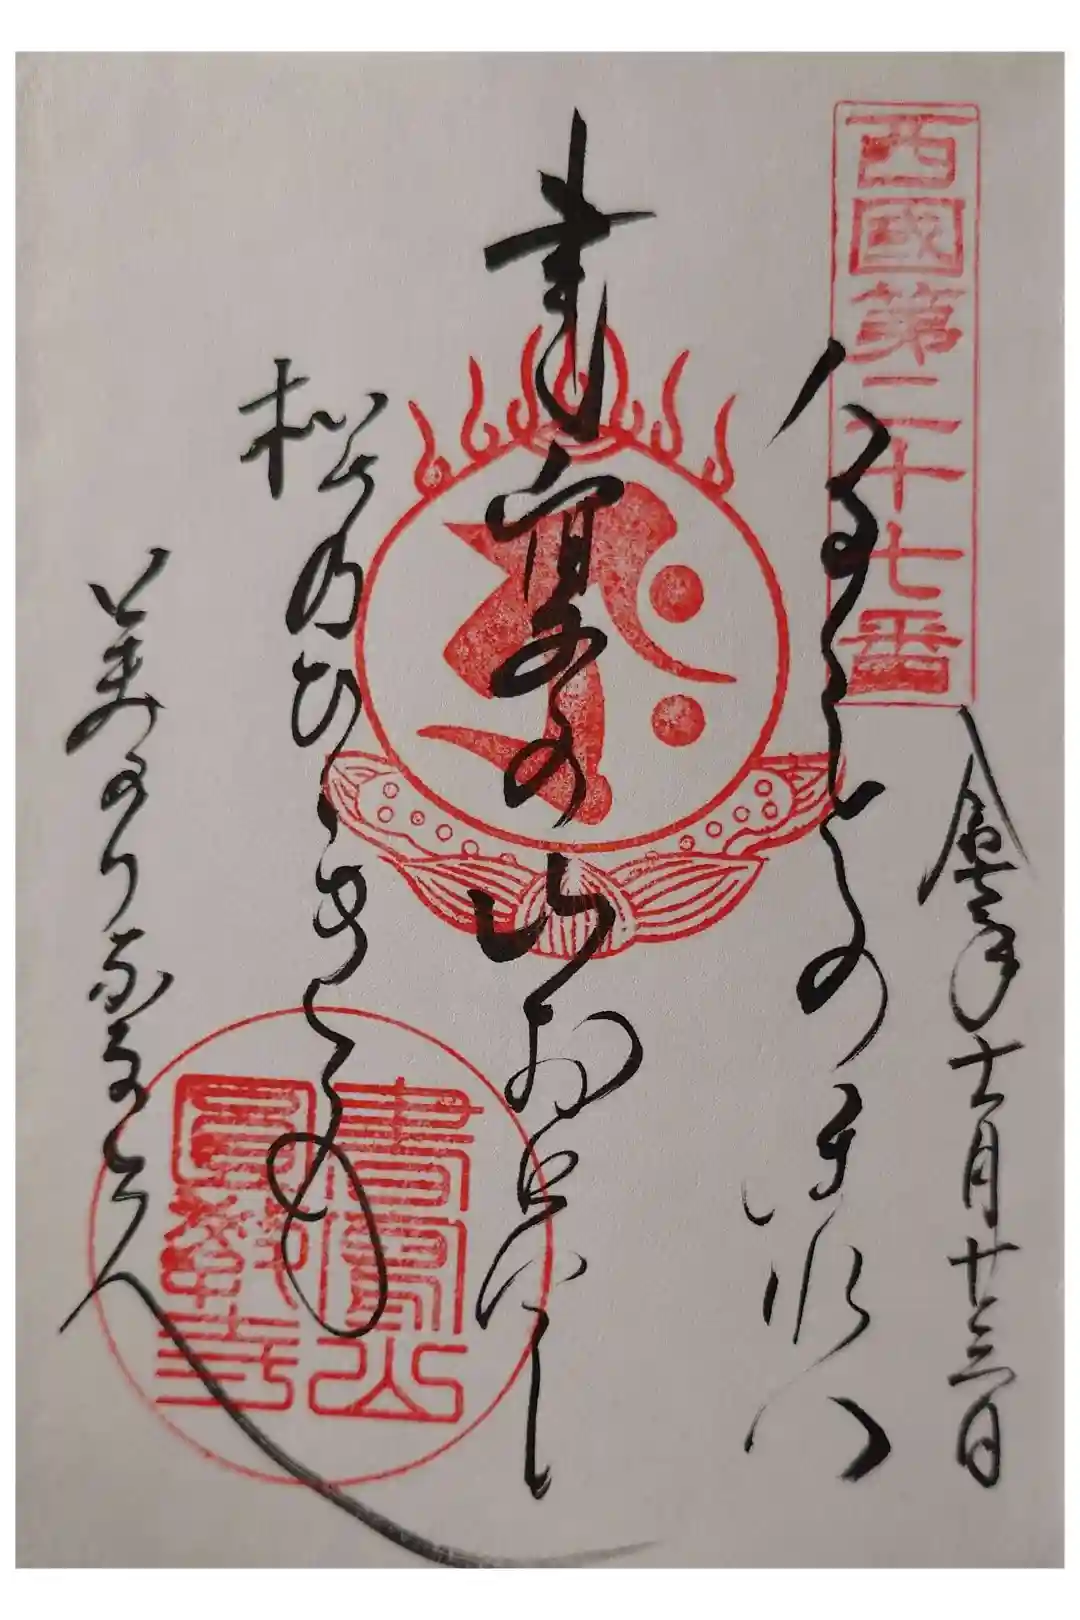 西國第二十七番
十一月廿三日
はる〳〵とのほれハ
書寫の山おろし
松のひゝきも
のりなるらん
書寫山
圓教寺